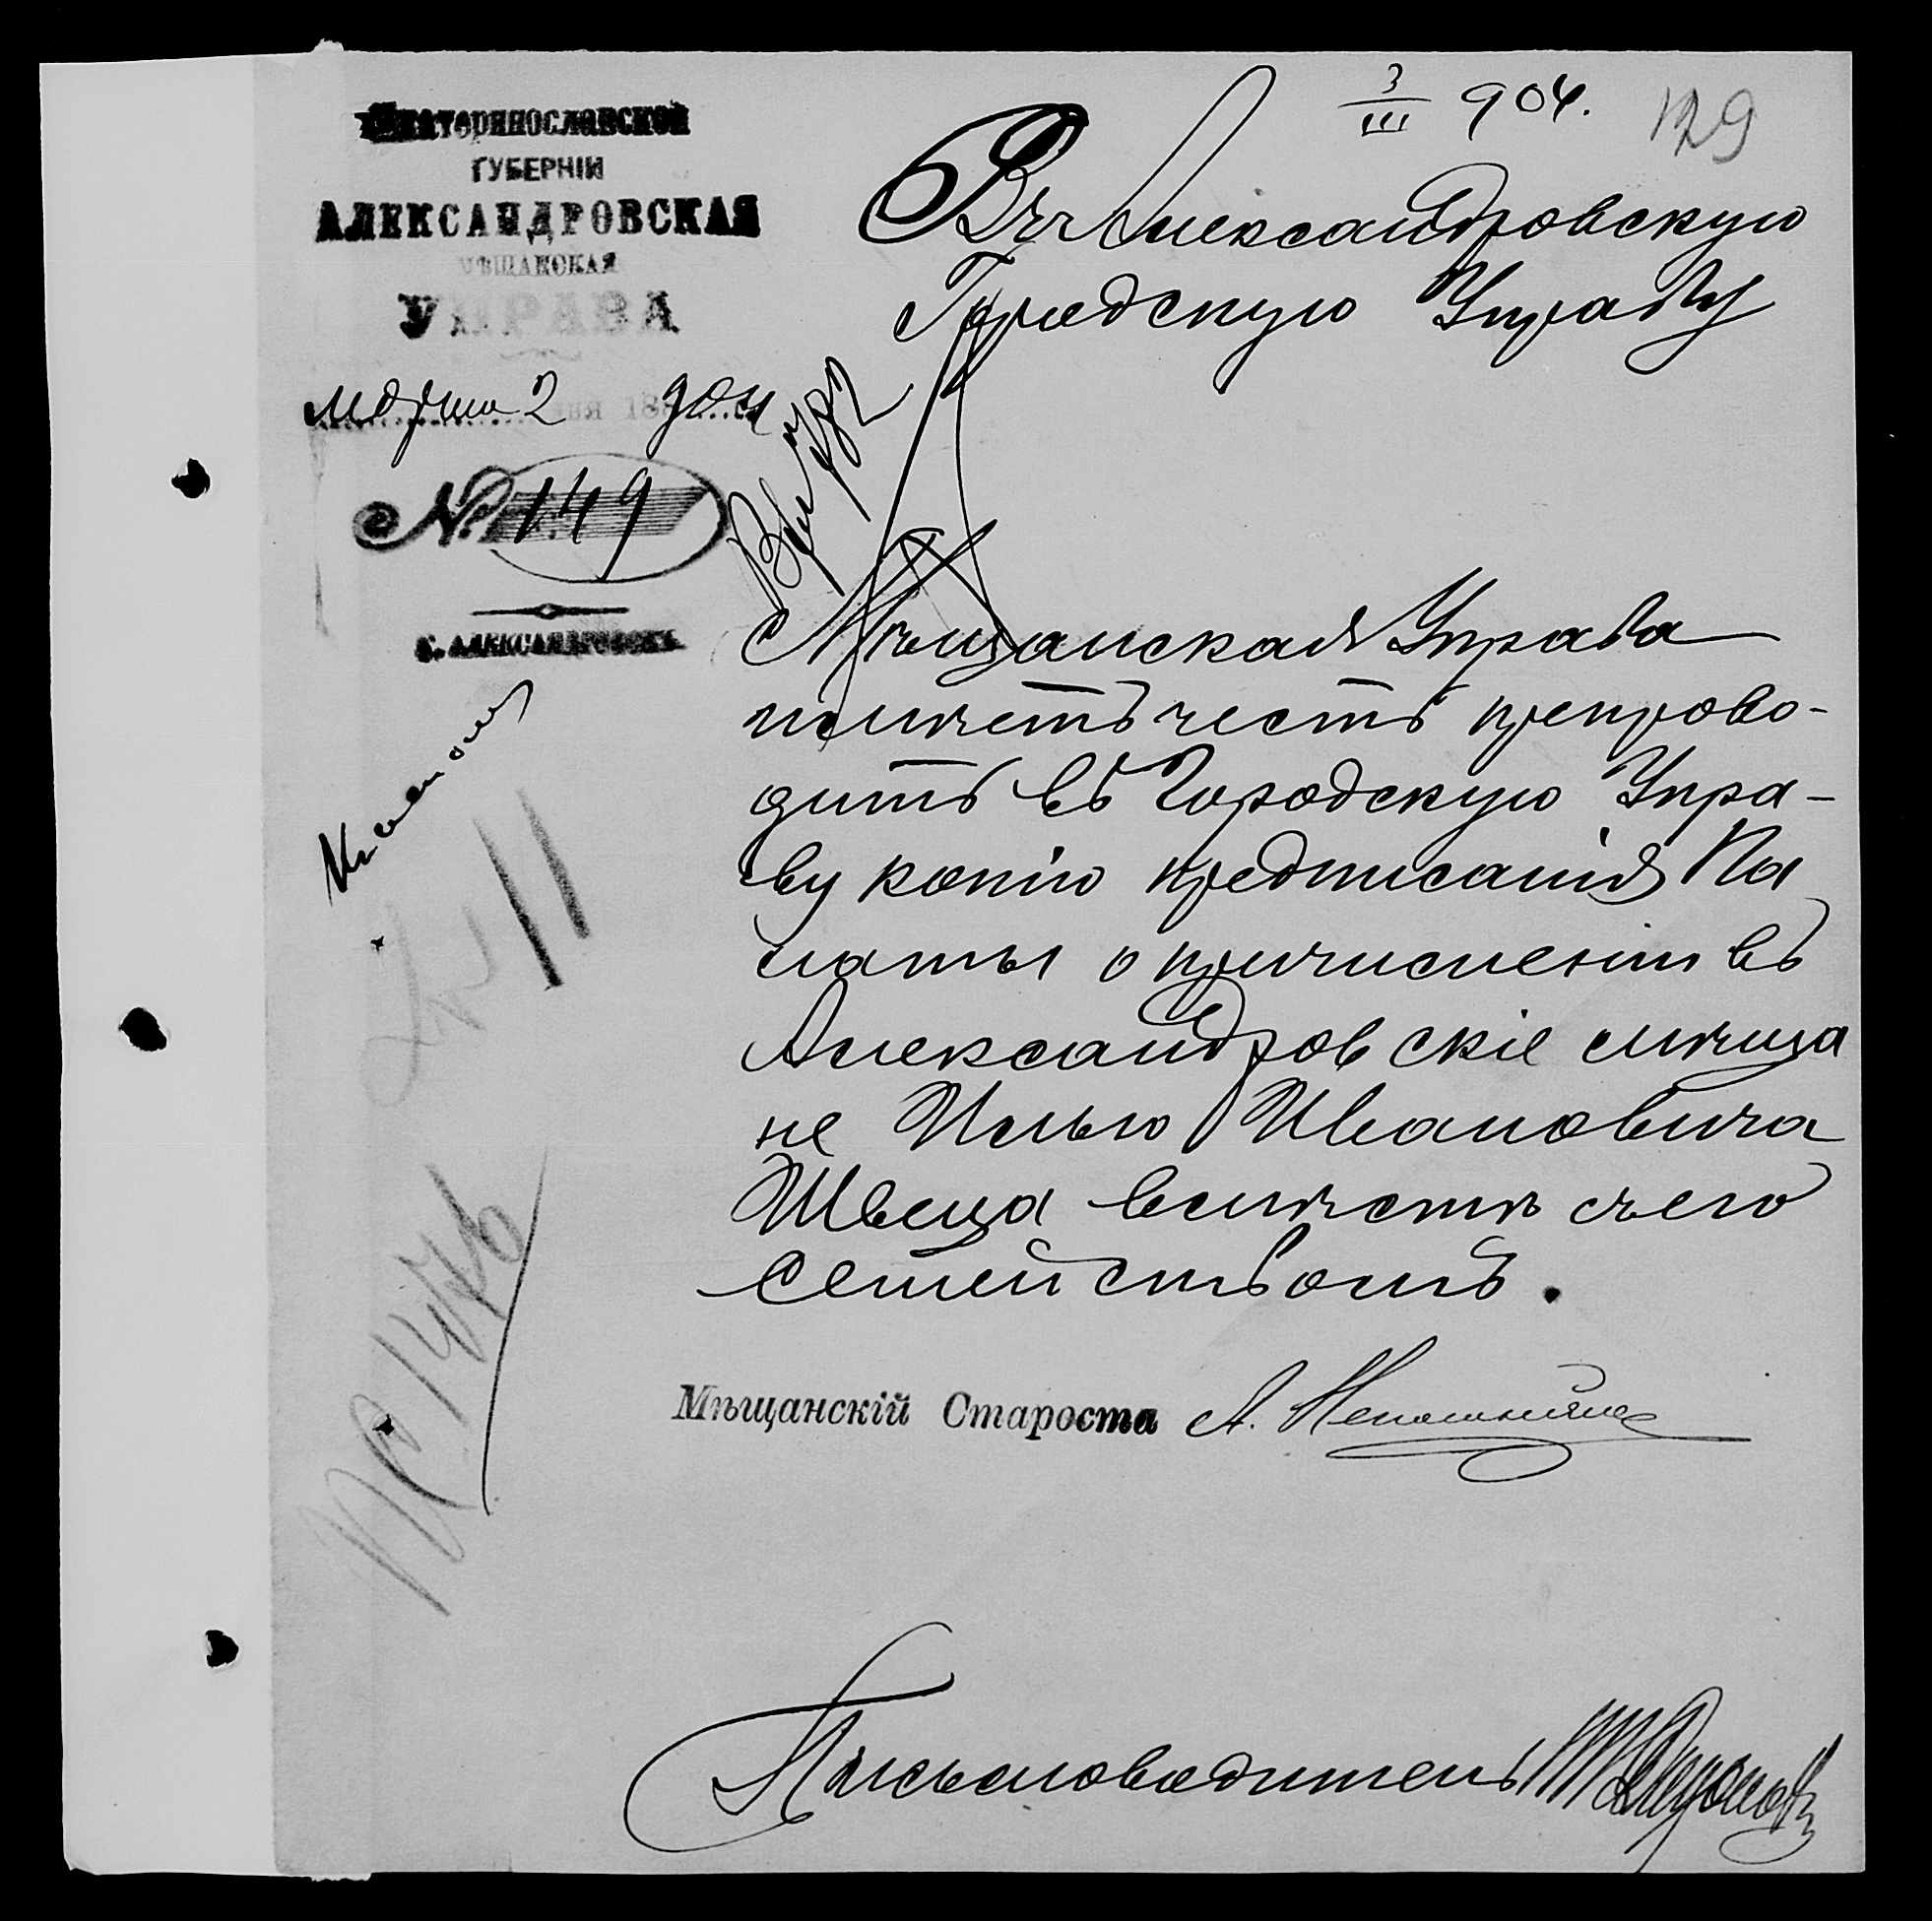 3/III 904.
129
Екатеринославской
ГУБЕРНІИ
АЛЕКСАНДРОВСКАЯ
МѢЩАНСКАЯ
УПРАВА
марта 2 дня 18 904
№ 149
г. Александровскъ
Въ Александровскую
Городскую Управу
Мѣщанская Управа
имѣетъ честь препрово-
дить въ Городскую Упра-
ву копію предписанія Па
латы о причисленіи въ
Александровскіе мѣща
не Илью Ивановича
Швеца вмѣстѣ съ его
семействомъ.
Мѣщанскій Староста А.
Письмоводитель